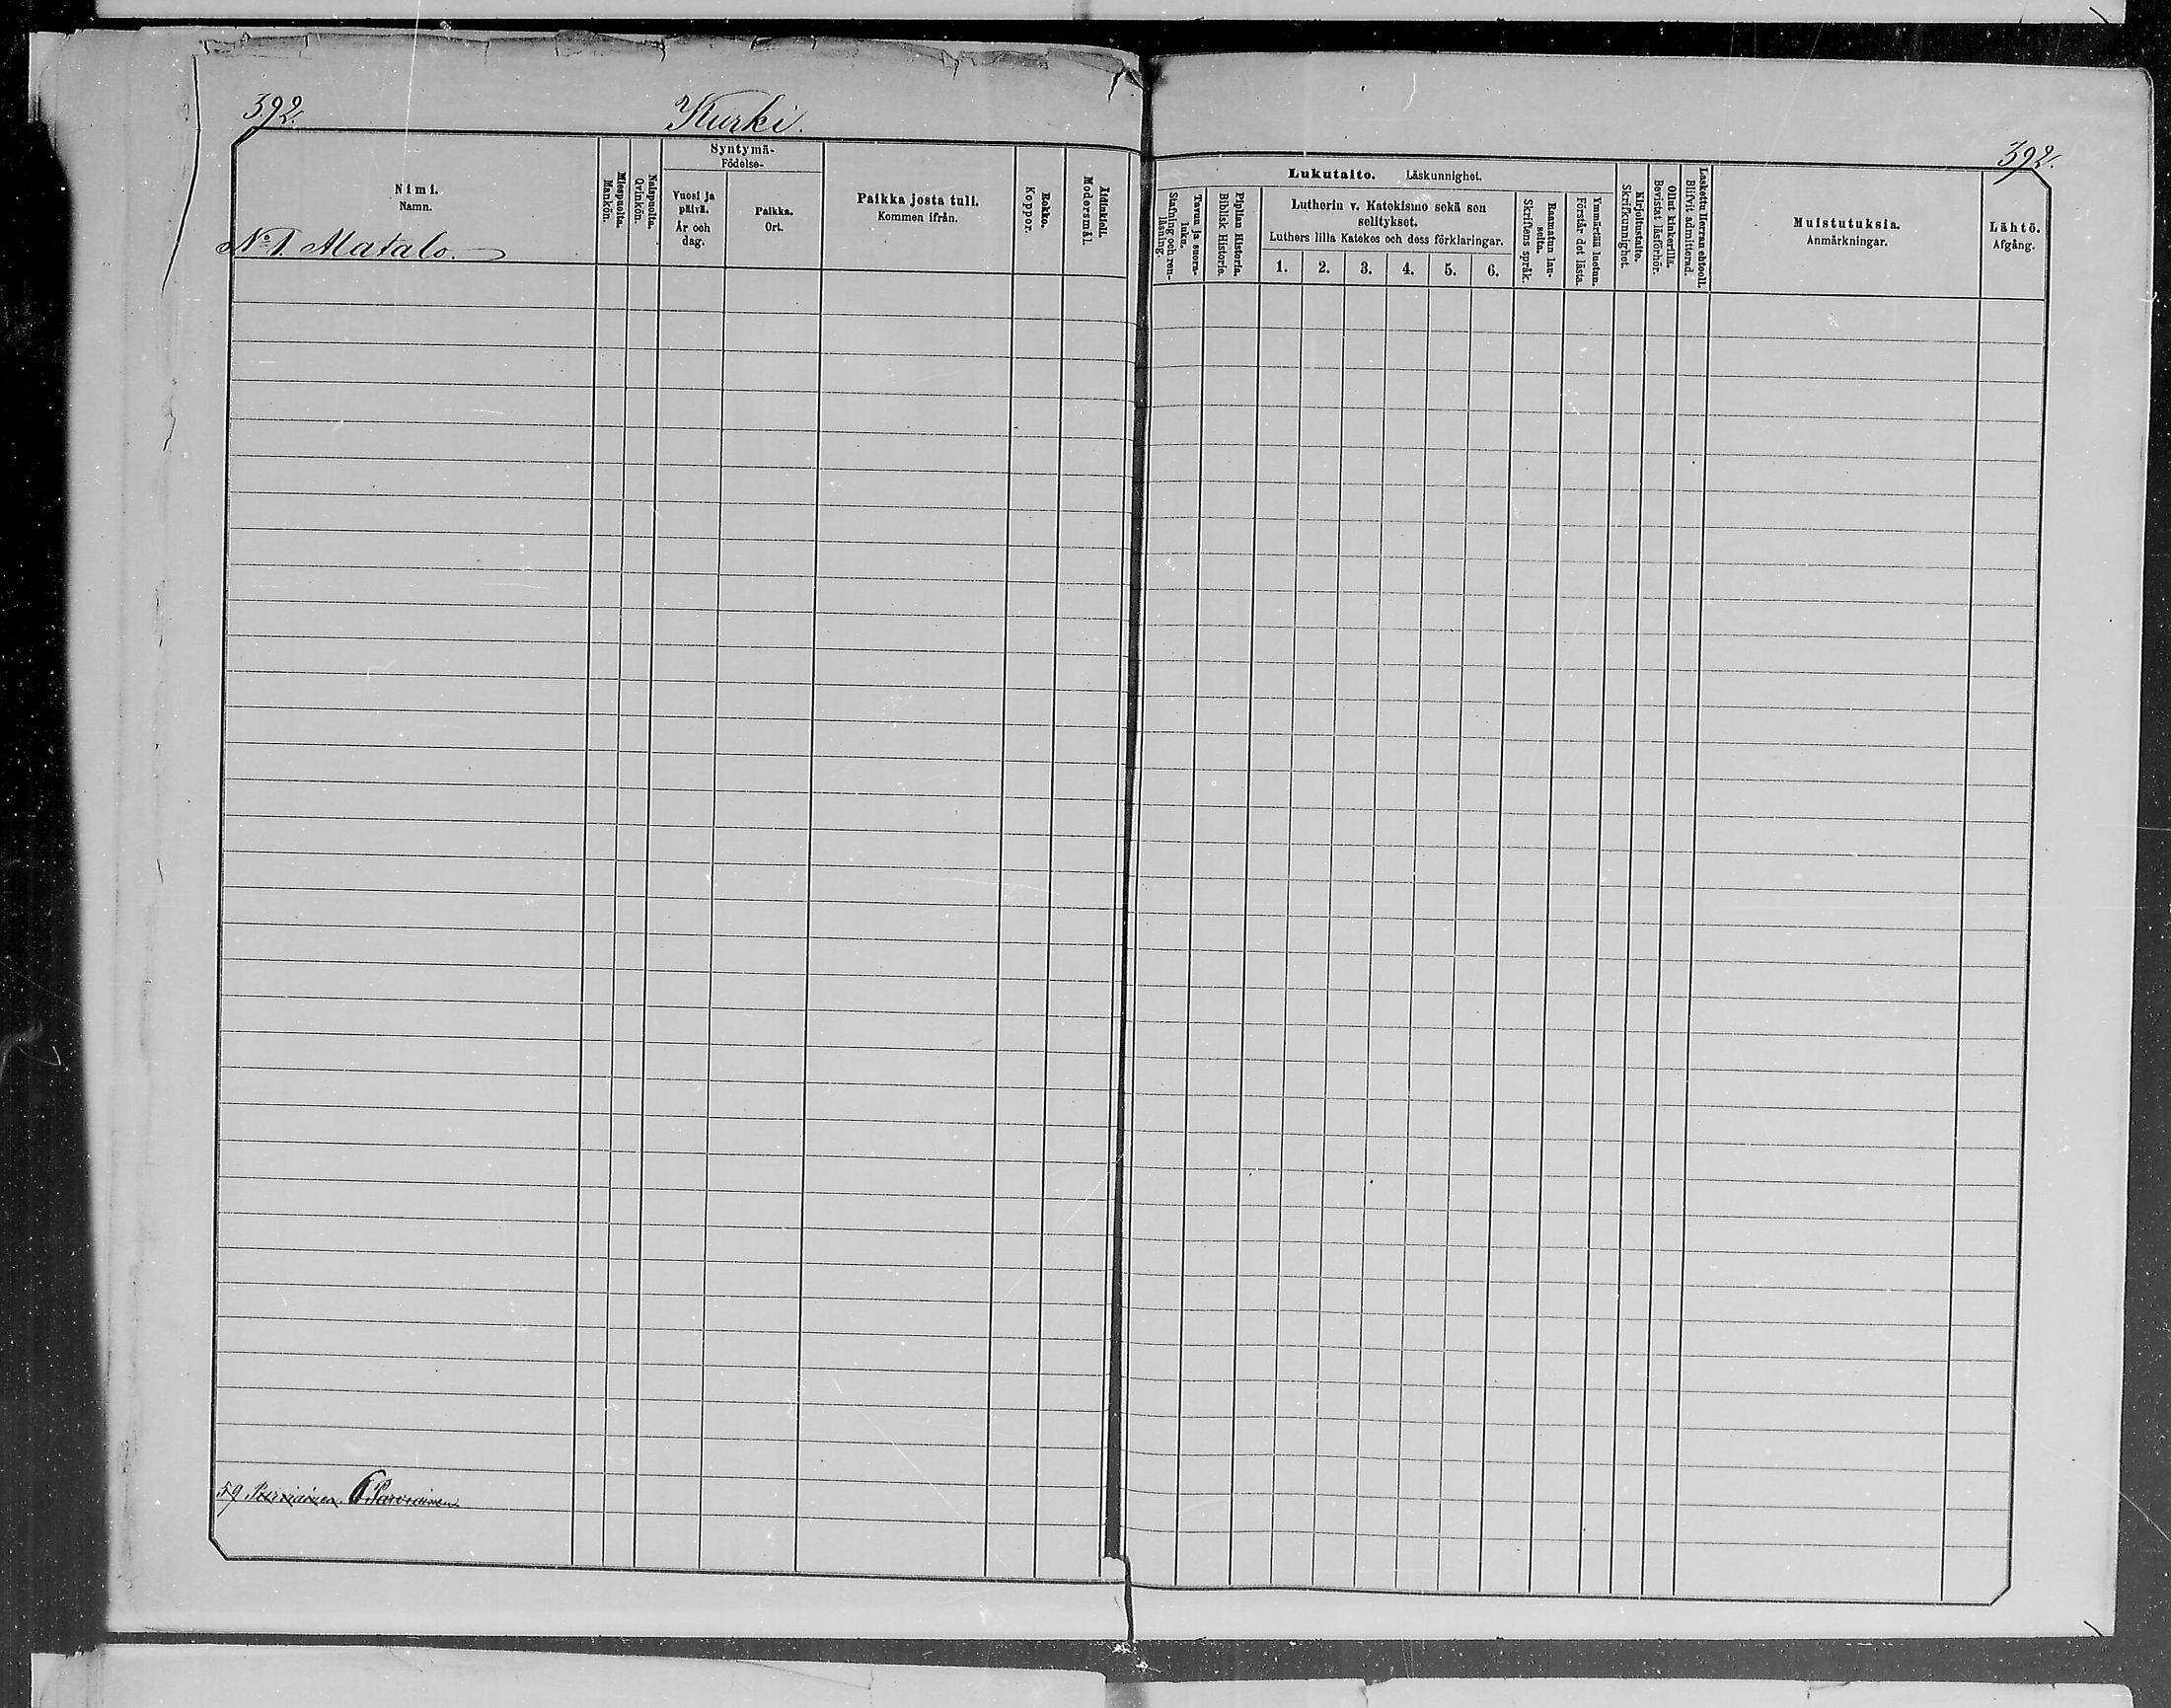 392.
Kurki.
392.
Nimi.
Namn.
Miespuolta.
Mankön.
Naispuolta.
Qvinkön.
Syntymä-
Födelse-
Vuosi ja
päivä.
År och
dag.
Paikka.
Ort.
Paikka josta tuli.
Kommen ifrån.
Rokko.
Koppor.
Äidinkieli.
Modersmål.
Lukutaito. Läskunnighet.
Tavuu ja suora-
luku.
Stafning och ren-
läsning.
Piplian Historia.
Biblisk Historie.
Lutherin v. Katekismo sekä sen
selitykset.
Luthers lilla Katekes och dess förklaringar.
1. 2. 3. 4. 5. 6.
Raamatun lau-
seita.
Skriftens språk.
Ymmärtää luetun.
Förstår det lästa.
Kirjoitustaito.
Skrifkunnighet.
Ollut kinkerillä.
Bevistat läsförhör.
Laskettu Herran ehtooll.
Blifvit admitterad.
Muistutuksia.
Anmärkningar.
Lähtö.
Afgång.
No 1. Alatalo.
59